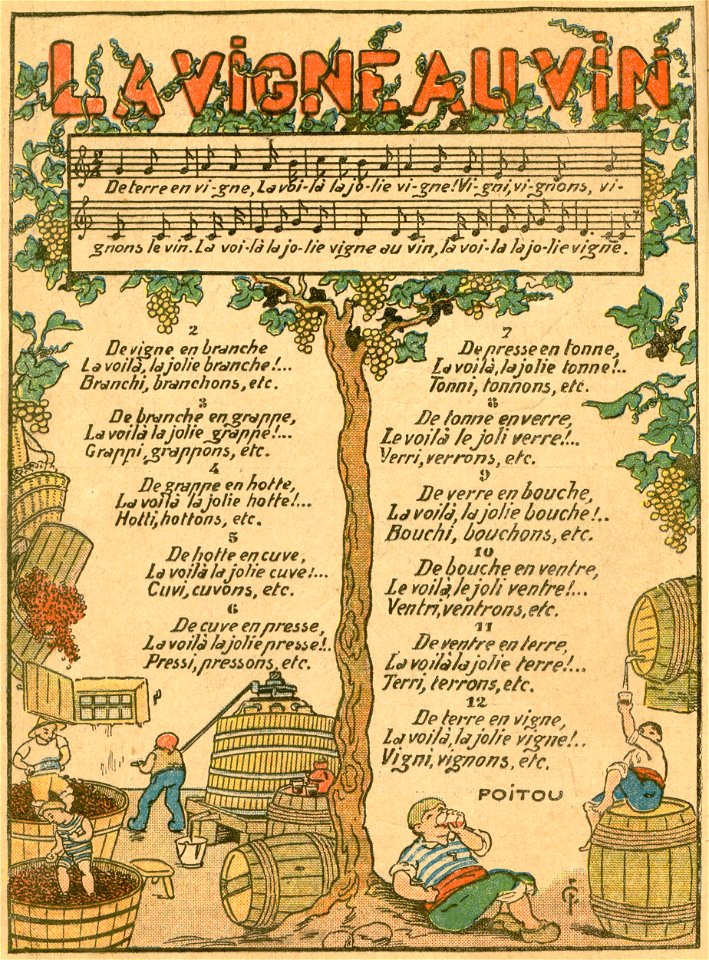 LA VIGNE AU VIN
De terre en vi-gne, La voi-là la jo-lie vi-gne! Vi-gni, vi-gnons, vi-
gnons le vin. La voi-là la jo-lie vigne au vin, la voi-là la jo-lie vigne.
2
De vigne en branche
La voilà, la jolie branche!...
Branchi, branchons, etc.
3
De branche en grappe,
La voilà la jolie grappe!...
Grappi, grappons, etc.
4
De grappe en hotte,
La voilà la jolie hotte!...
Hotti, hottons, etc.
5
De hotte en cuve,
La voilà la jolie cuve!...
Cuvi, cuvons, etc.
6
De cuve en presse,
La voilà la jolie presse!..
Pressi, pressons, etc.
7
De presse en tonne,
La voilà, la jolie tonne!..
Tonni, tonnons, etc.
8
De tonne en verre,
Le voilà le joli verre!...
Verri, verrons, etc.
9
De verre en bouche,
La voilà, la jolie bouche!..
Bouchi, bouchons, etc.
10
De bouche en ventre,
Le voilà, le joli ventre!...
Ventri, ventrons, etc.
11
De ventre en terre,
La voilà la jolie terre!...
Terri, terrons, etc.
12
De terre en vigne,
La voilà, la jolie vigne!..
Vigni, vignons, etc.
POITOU